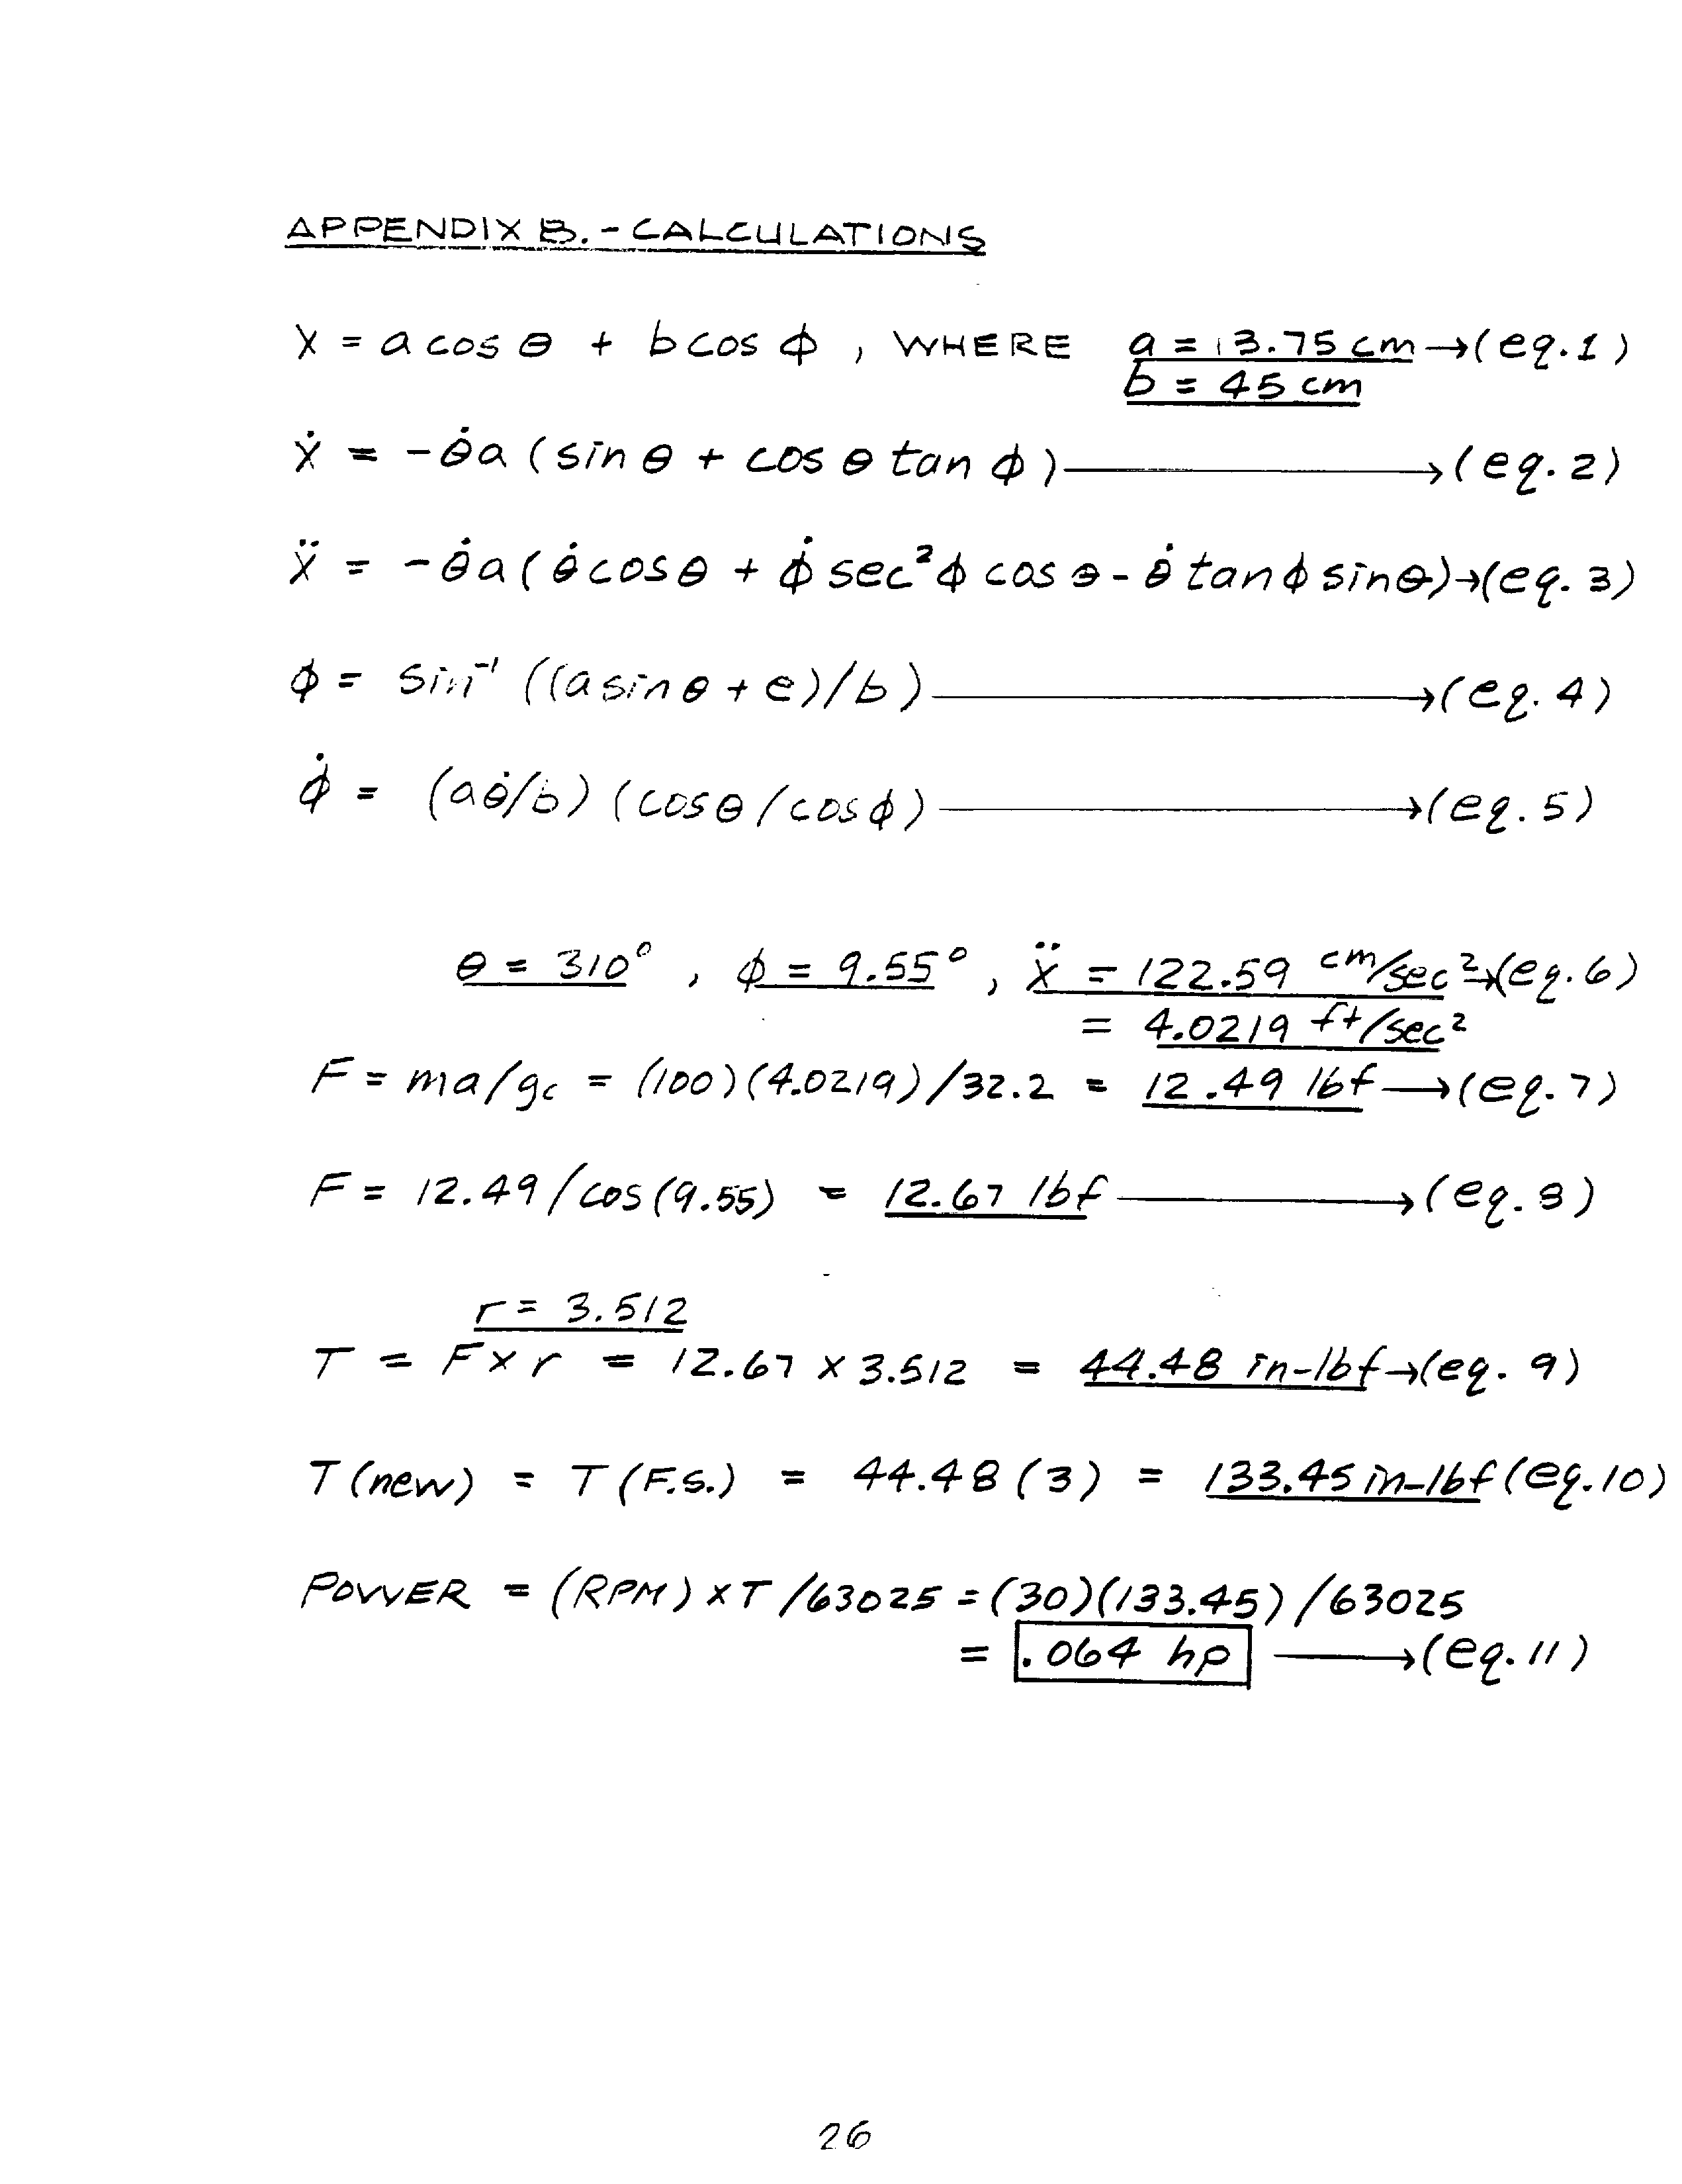 APPENDIX B. - CALCULATIONS
X = a cos θ + b cos ϕ , WHERE a = 13.75 cm → (eq. 1)
b = 45 cm
Ẋ = -θ̇a (sin θ + cos θ tan ϕ) → (eq. 2)
Ẍ = -θ̇a (θ̇ cos θ + ϕ̇ sec²ϕ cos θ - θ̇ tan ϕ sin θ) → (eq. 3)
ϕ = sin⁻¹ ((a sin θ + e)/b) → (eq. 4)
ϕ̇ = (aθ̇/b) (cos θ / cos ϕ) → (eq. 5)
θ = 310° , ϕ = 9.55° , Ẍ = 122.59 cm/sec² → (eq. 6)
= 4.0219 ft/sec²
F = ma/gc = (100)(4.0219)/32.2 = 12.49 lbf → (eq. 7)
F = 12.49/cos(9.55) = 12.67 lbf → (eq. 8)
r = 3.512
T = F x r = 12.67 x 3.512 = 44.48 in-lbf → (eq. 9)
T (new) = T (F.S.) = 44.48 (3) = 133.45 in-lbf (eq. 10)
POWER = (RPM) x T / 63025 = (30)(133.45) / 63025
= .064 hp → (eq. 11)
26